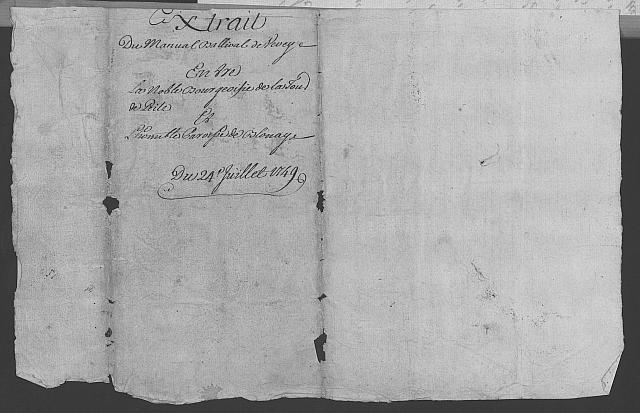 Extrait
Du Manual Ballival de Vevey
Entre
La Noble Bourgeoisie de la Tour
de Peile
Et
L'honnble Paroisse de Blonay
Du 24e Juillet 1749